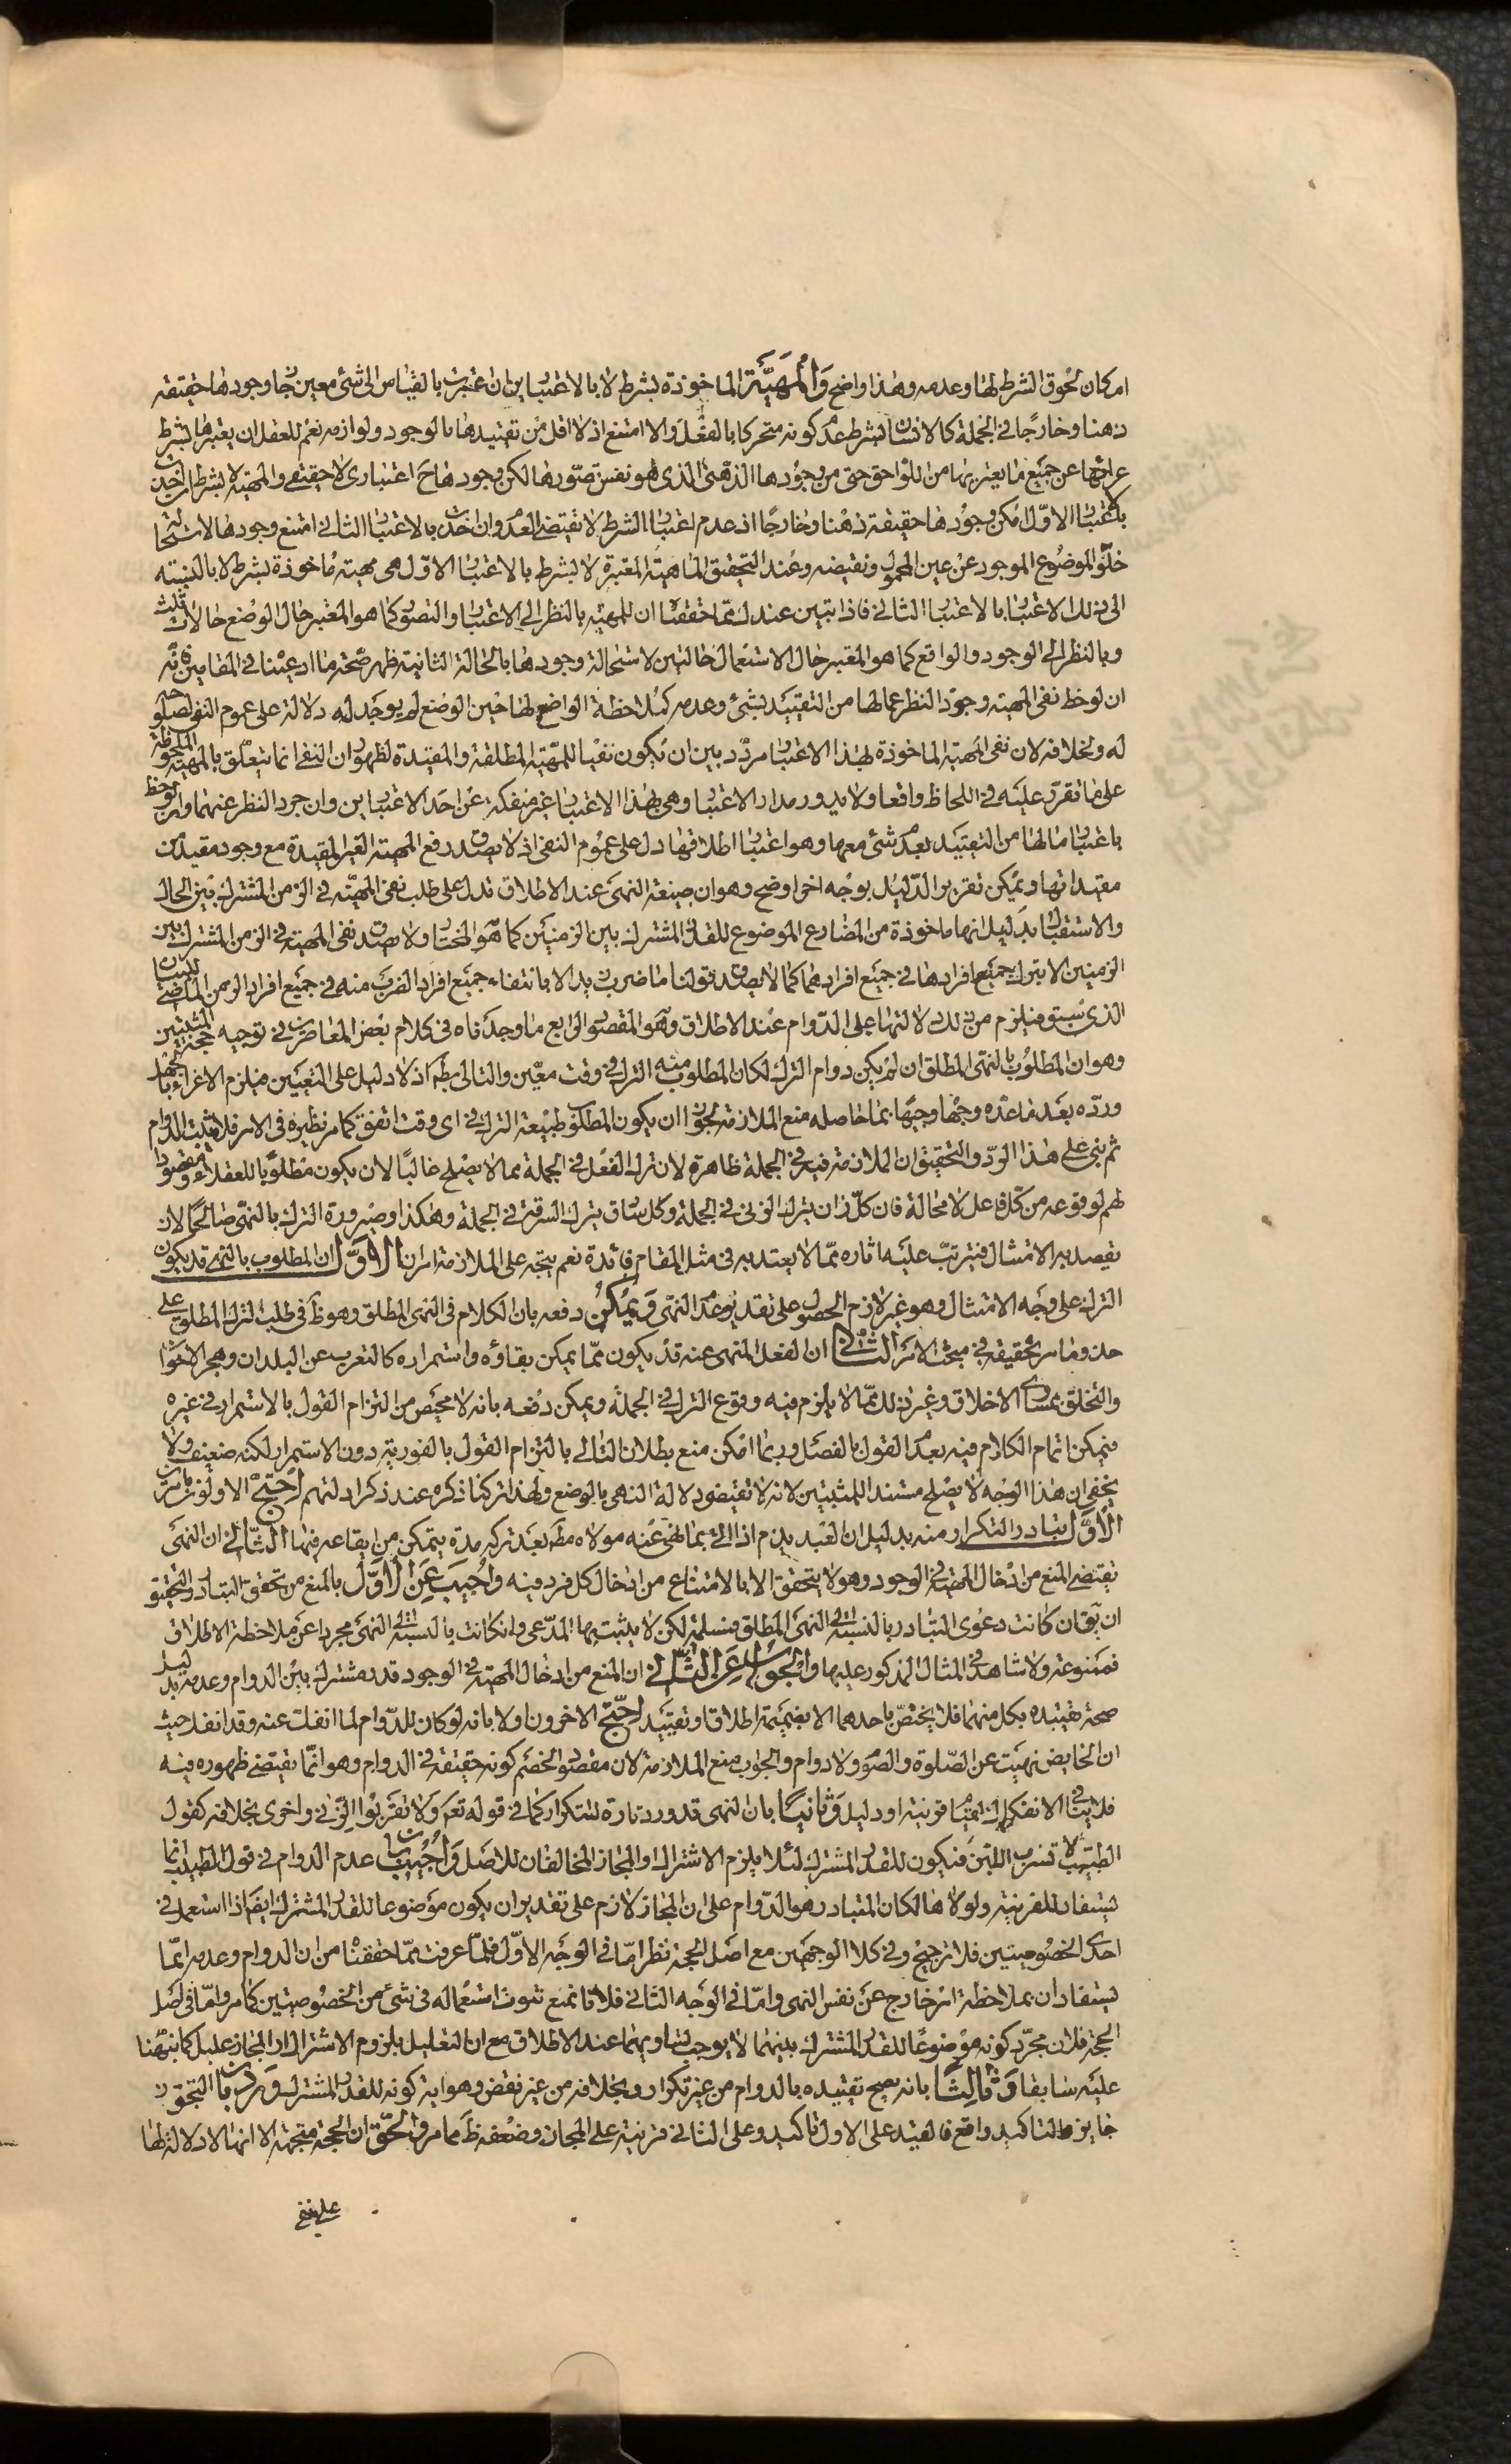 امكان لحوق الشرط لها وعدمه وهذا واضح وَالْمَهيَّة الماخوذة بشرط لا بالاعتبارين ان اعتبرت بالقياس الى شئ معين جاز وجودها حقيقة
ذهنا وخارجًا في الجملة كالانسان بشرط عدم كونه متحركا بالفعل والا امتنع اذ لا اقل من تقييدها بالوجود ولوازمه نعم للعقل ان يعتبرها بشرط
عرائها عن جميع ما يعتريها من اللواحق حتى من وجودها الذهنى الذى هو نفس تصورها لكن وجودها ح اعتبارى لا حقيقى والمهية لا بشرط ان اخذت
بالاعتبار الاول امكن وجودها حقيقة ذهنا وخارجًا اذ عدم اعتبار الشرط لا يقتضى العدم وان اخذت بالاعتبار الثانى امتنع وجودها لاستحالة
خلو الموضوع الموجود عن عين المحمول ونقيضه وعند التحقيق الماهية المعتبرة لا بشرط بالاعتبار الاول هى مهية ماخوذة بشرط لا بالنسبة
الى ذلك الاعتبار بالاعتبار الثانى فاذا تبين عندك مما حققنا ان للمهية بالنظر الى الاعتبار والتصور كما هو المعتبر حال الوضع حالات ثلث
وبالنظر الى الوجود والواقع كما هو المعتبر حال الاستعمال حالتين لاستحالة وجودها بالحالة الثانية ظهر صحة ما ادعينا في المقامين فانه
ان لوحظ نفى المهية وجرد النظر عما لها من التقييد بشئ وعدمه كملاحظة الواضع لها حين الوضع لم يوجد له دلالة على عموم النفى لصلوحه
له ولخلافه لان نفى المهية الماخوذة بهذا الاعتبار مردد بين ان يكون نفيا للمهية المطلقة والمقيدة لظهور ان النفى انما يتعلق بالمهية الملحوظة
على ما تقرر عليه في اللحاظ واقعا ولا يدور مدار الاعتبار وهى بهذا الاعتبار غير منفكة عن احد الاعتبارين وان جرد النظر عنهما وان لوحظ
باعتبار ما لها من التقييد بعدم شئ معها وهو اعتبار اطلاقها دل على عموم النفى اذ لا يصدق رفع المهية الغير المقيدة مع وجود مقيد من
مقيداتها ويمكن تقرير الدليل بوجه اخر اوضح وهو ان صيغة النهى عند الاطلاق تدل على طلب نفى المهية في الزمن المشترك بين الحال
والاستقبال بدليل انها ماخوذة من المضارع الموضوع للقدر المشترك بين الزمنين كما هو المختار ولا يصدق نفى المهية في الزمن المشترك بين
الزمنين الا بترك جميع افرادها في جميع افرادهما كما لا يصدق قولنا ما ضرب زيد الا بانتفاء جميع افراد الضرب منه في جميع افراد الزمن الماضى للبيان
الذى سبق فيلزم من ذلك دلالتها على الدوام عند الاطلاق وهو المقصود الرابع ما وجدناه في كلام بعض المعاصرين في توجيه حجة المثبتين
وهو ان المطلوب بالنهى المطلق ان لم يكن دوام الترك لكان المطلوب منه الترك في وقت معين والتالى بط اذ لا دليل على التعيين فيلزم الاغراء بالجهل
ورده بعد ما عده وجها وجيها بما حاصله منع الملازمة لجواز ان يكون المطلوب طبيعة الترك في اى وقت اتفق كما مر نظيره في الامر فلا يثبت الدوام
ثم بنى على هذا الرد والتحقيق ان الملازمة فيه في الجملة ظاهرة لان ترك الفعل في الجملة مما لا يصلح غالبًا لان يكون مطلوبا للعقلاء ومقصودا
لهم لوقوعه من كل فاعل لا محالة فان كل زان يترك الزنى في الجملة وكل سارق يترك السرقة في الجملة وهكذا وضرورة الترك بالنهى صالحًا لان
يقصد به الامتثال فيترتب عليه اثاره مما لا يعتد به في مثل المقام فائدة نعم يتجه على الملازمة امران الاَوَّل ان المطلوب بالنهى قد يكون
الترك على وجه الامتثال وهو غير لازم الحصول على تقدير عدم النهى وَيُمْكِنُ دفعه بان الكلام في النهى المطلق وهو ظ في طلب الترك المطلوب على
حد وما مر تحقيقه في مبحث الامر الثَّانى ان الفعل المنهى عنه قد يكون مما يمكن بقاؤه واستمراره كالتغرب عن البلدان وهجر الاخوان
والتخلق بمساوى الاخلاق وغير ذلك مما لا يلزم فيه وقوع الترك في الجملة ويمكن دفعه بانه لا محيص من التزام القول بالاستمرار في غيره
فيمكن اتمام الكلام فيه بعدم القول بالفصل وربما امكن منع بطلان التالى بالتزام القول بالفورية دون الاستمرار لكنه ضعيف ولا
يخفى ان هذا الوجه لا يصلح مستندا للمثبتين لانه لا يقتضى دلالة النهى بالوضع ولهذا تركنا ذكره عند ذكر ادلتهم احْتَجَّ الاولون بامرين
الْاَوَّل تبادر التكرار منه بدليل ان العبد يذم اذا اتى بما نهى عنه مولاه مط بعد تركه مدة يتمكن من ايقاعه فيها الثَّانى ان النهى
يقتضى المنع من ادخال المهية في الوجود وهو لا يتحقق الا بالامتناع من ادخال كل فرد فيه وَاُجيبَ عَنِ الْاَوَّل بالمنع من تحقق التبادر والتحقيق
ان يق ان كانت دعوى التبادر بالنسبة الى النهى المطلق فمسلمة لكن لا يثبت بها المدعى وان كانت بالنسبة الى النهى مجردا عن ملاحظة الاطلاق
فممنوعة ولا شاهد في المثال المذكور عليها وَالْجَوابُ عَنِ الثَّانى ان المنع من ادخال المهية في الوجود قدر مشترك بين الدوام وعدمه بدليل
صحة تقييده بكل منهما فلا يختص باحدهما الا بضميمة اطلاق او تقييد احْتَجَّ الاخرون اولا بانه لو كان للدوام لما انفك عنه وقد انفك حيث
ان الحايض نهيت عن الصلوة والصوم ولا دوام والجواب منع الملازمة لان مقصود الخصم كونه حقيقة في الدوام وهو انما يقتضى ظهوره فيه
فلا ينافى الانفكاك لقيام قرينة او دليل وَثانيًا بان النهى قد ورد تارة للتكرار كما في قوله تعم وَلا تَقْرَبُوا الزِّنى واخرى بخلافه كقول
الطبيب لا تشرب اللبن فيكون للقدر المشترك لئلا يلزم الاشتراك او المجاز المخالفان للاصل وَاُجيبَ بان عدم الدوام في قول الطبيب انما
يستفاد للقرينة ولولاها لكان المتبادر هو الدوام على ان المجاز لازم على تقدير ان يكون موضوعا للقدر المشترك ايضا اذا استعمل في
احدى الخصوصيتين فلا ترجيح وفي كلا الوجهين مع اصل الحجة نظر اما في الوجه الاول فلما عرفت مما حققنا من ان الدوام وعدمه انما
يستفادان بملاحظة امر خارج عن نفس النهى واما في الوجه الثانى فلانا نمنع ثبوت استعماله في شئ من الخصوصيتين كما مر واما في اصل
الحجة فلان مجرد كونه موضوعًا للقدر المشترك بينهما لا يوجب تساويهما عند الاطلاق مع ان التعليل بلزوم الاشتراك او المجاز عليل كما نبهنا
عليه سابقا وَثالِثًا بانه يصح تقييده بالدوام من غير تكرار وبخلافه من غير نقض وهو اية كونه للقدر المشترك وَرُدَّ بان التجوز
جايز والتاكيد واقع فالقيد على الاول تاكيد وعلى الثانى قرينة على المجاز وضعفه ظ مما مر والْحَقّ ان الحجة متجهة الا انها لا دلالة لها
على نفى